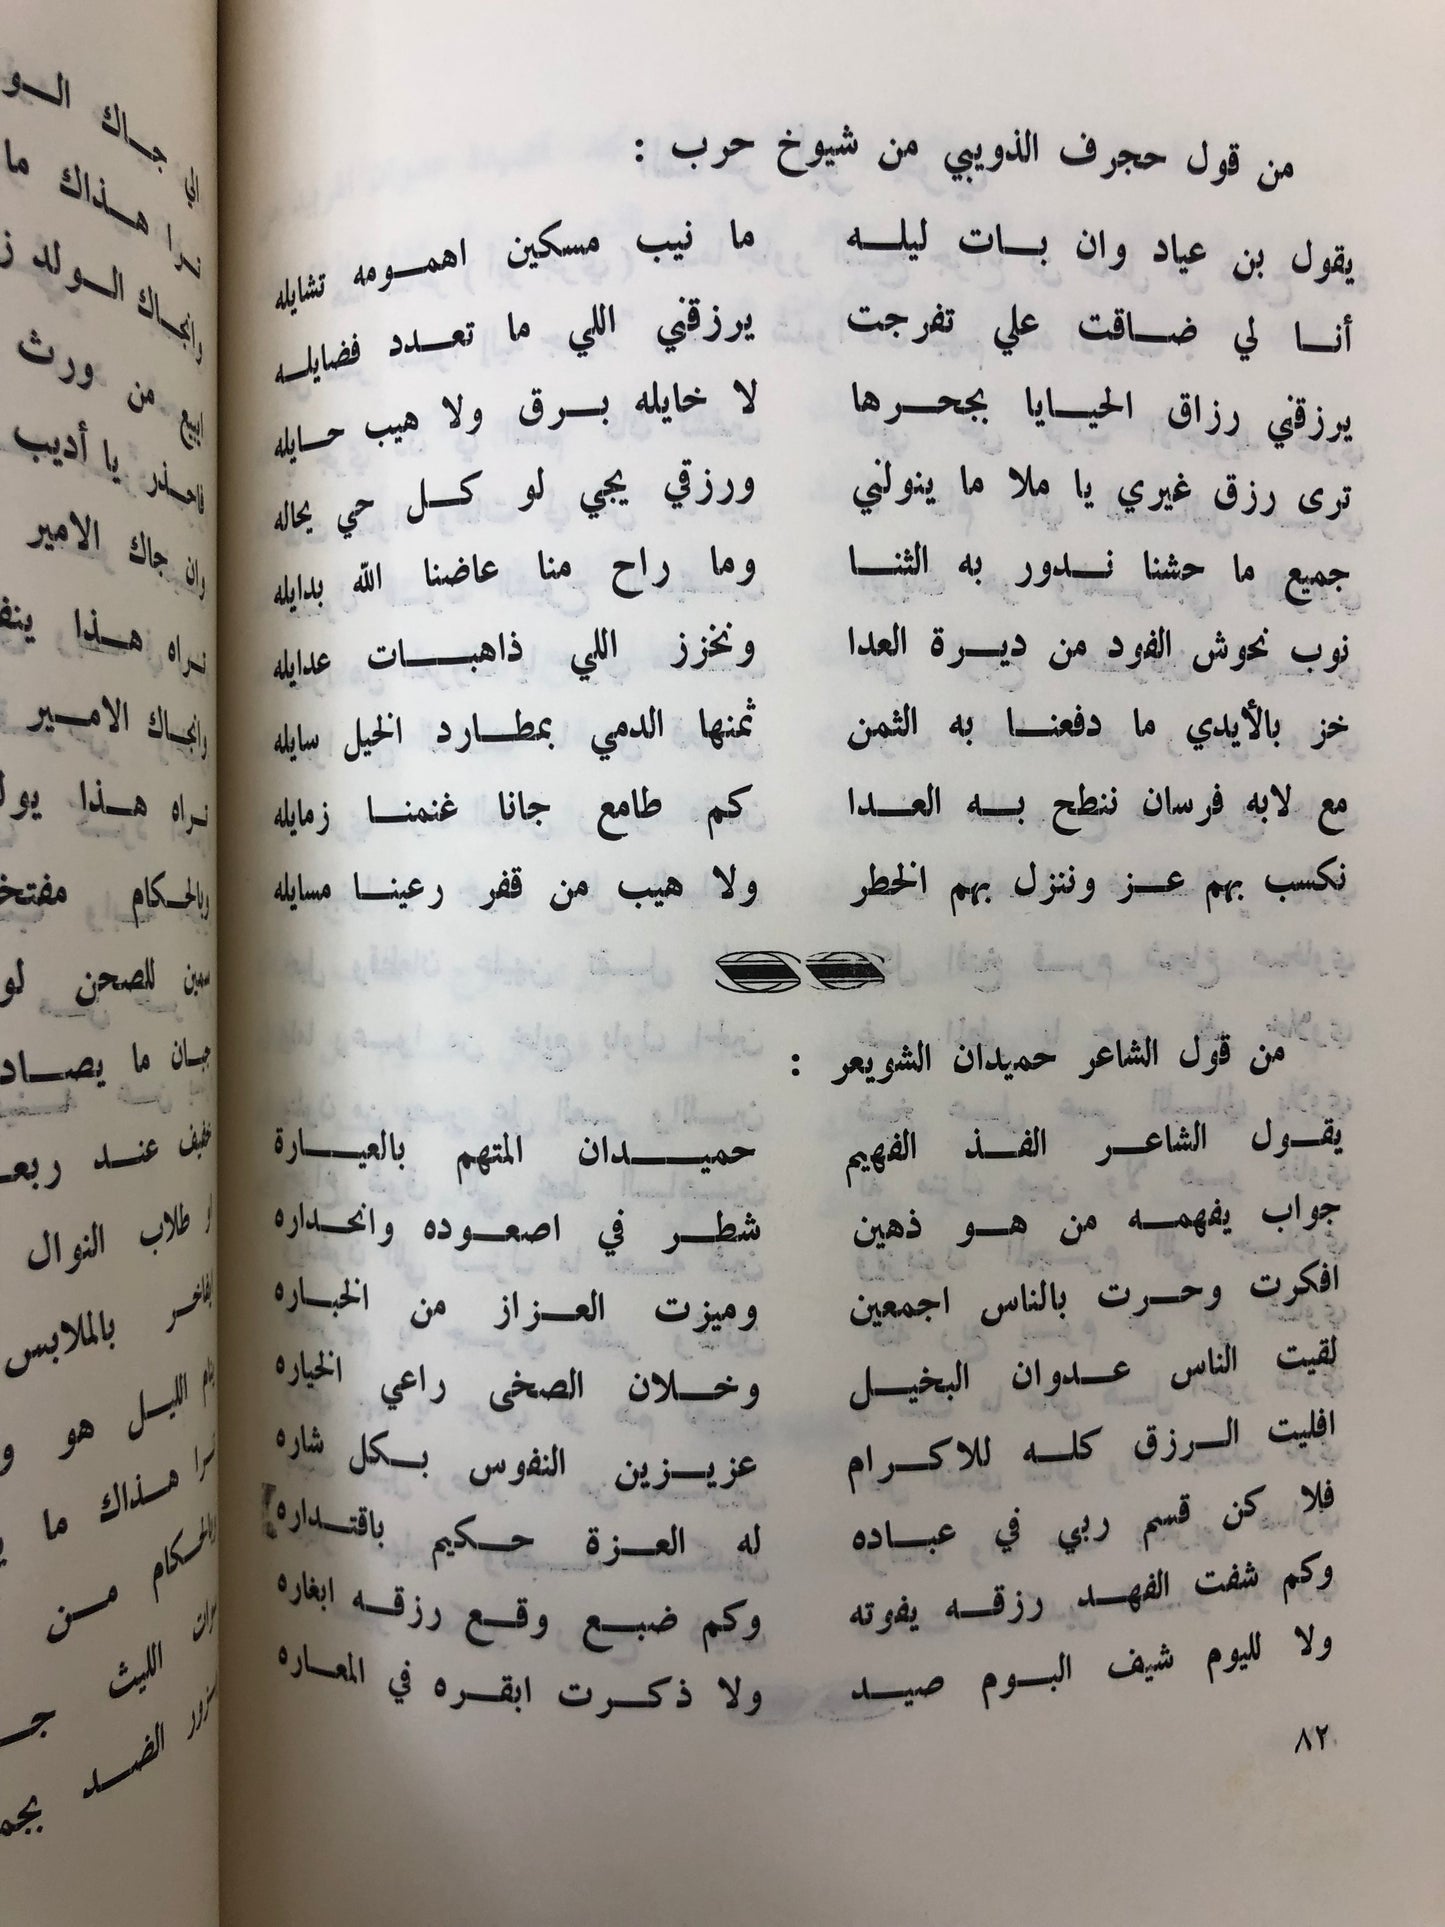 من قول حجرف الذويبي من شيوخ حرب :
يقول بن عياد وان بات ليله ما نيب مسكين اهمومه تشايله
أنا لي ضاقت علي تفرجت يرزقني اللي ما تعدد فضايله
يرزقني رزاق الحيايا بجحرها لا خايله برق ولا هيب حايله
ترى رزق غيري يا ملا ما ينولني ورزقي يجي لو كل حي يحاله
جميع ما حشنا ندور به الثنا وما راح منا عاضنا الله بدايله
نوب نحوش الفود من ديرة العدا ونخزز اللي ذاهبات عدايله
خز بالأيدي ما دفعنا به الثمن ثمنها الدمي بمطارد الخيل سايله
مع لابه فرسان ننطح به العدا كم طامع جانا غنمنا زمايله
نكسب بهم عز وننزل بهم الخطر ولا هيب من قفر رعينا مسايله
من قول الشاعر حميدان الشويعر :
يقول الشاعر الفذ الفهيم حميدان المتهم بالعيارة
جواب يفهمه من هو ذهين شطر في اصعوده وانحداره
افكرت وحرت بالناس اجمعين وميزت العزاز من الخباره
لقيت الناس عدوان البخيل وخلان الصخى راعي الخياره
افليت الرزق كله للاكرام عزيزين النفوس بكل شاره
فلا كن قسم ربي في عباده له العزة حكيم باقتداره
وكم شفت الفهد رزقه يفوته وكم ضبع وقع رزقه ابغاره
ولا لليوم شيف البوم صيد ولا ذكرت ابقره في المعاره
٨٢
الي جاك الو
نرا هذاك ما
وانجاك الولد
ابيع من ورث
فاحذر يا أديب
وان جاك الامير
نراه هذا
وانجاك الامير
نراه هذا
وبالحكام
سمين للصحن لو
جبان ما
خفيف عند
او طلاب النوال
بالملابس
ينام الليل هو
نرا هذاك ما
وبالحكام من
الليث
الضد